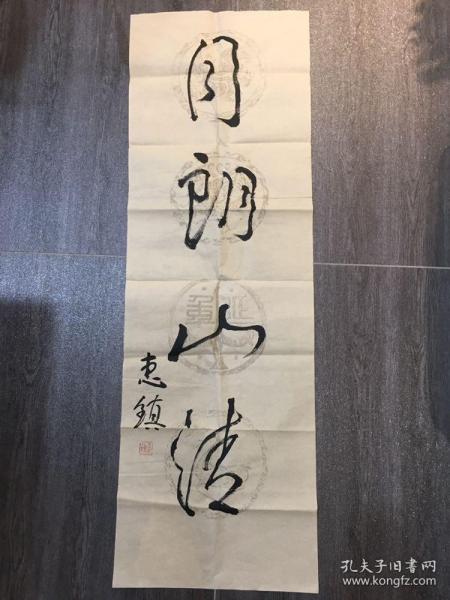 月朗山清
惠鎮
孔夫子旧书网
www.kongfz.com